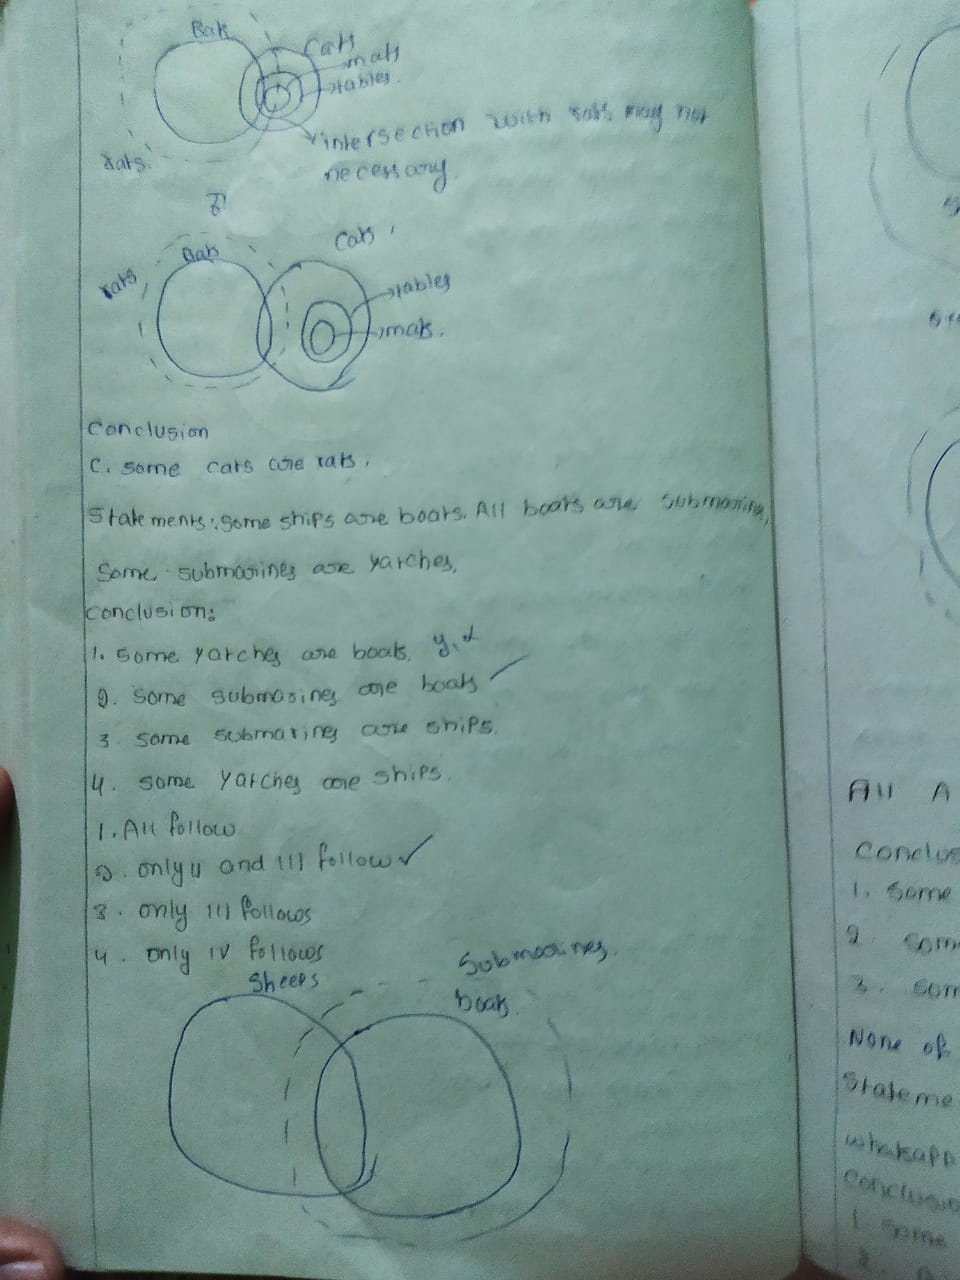 Bats
Cats
mats
tables.
intersection with rats may not
necessary.
rats.
Bats
Cats
rats
tables
mats.
Conclusion
C. Some cats are rats.
Statements: Some ships are boats. All boats are submarines,
Some submarines are yarches,
Conclusion:
1. Some yarches are boats,
2. Some submarines are boats ✓
3. Some submarines are ships.
4. Some yarches are ships.
1. All follow
2. only II and III follow ✓
3. only III follows
4. only IV follows
Sheeps
Submarines.
boats.
All A
Conclus
1. Some
2. Som
3. Som
None of
Stateme
whatsapp
Conclusio
1. Some
2.